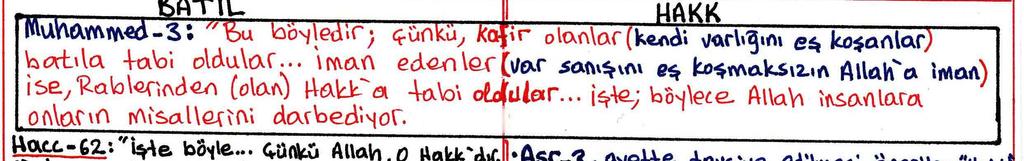 BATIL
HAKK
Muhammed-3: "Bu böyledir; çünkü, kafir olanlar (kendi varlığını eş koşanlar)
batıla tabi oldular... iman edenler (var sanışını eş koşmaksızın Allah'a iman)
ise, Rablerinden (olan) Hakk'a tabi oldular... işte; böylece Allah insanlara
onların misallerini darbediyor.
Hacc-62: "işte böyle... Çünkü Allah, O Hakk'dır.
• Asr-3. ayette